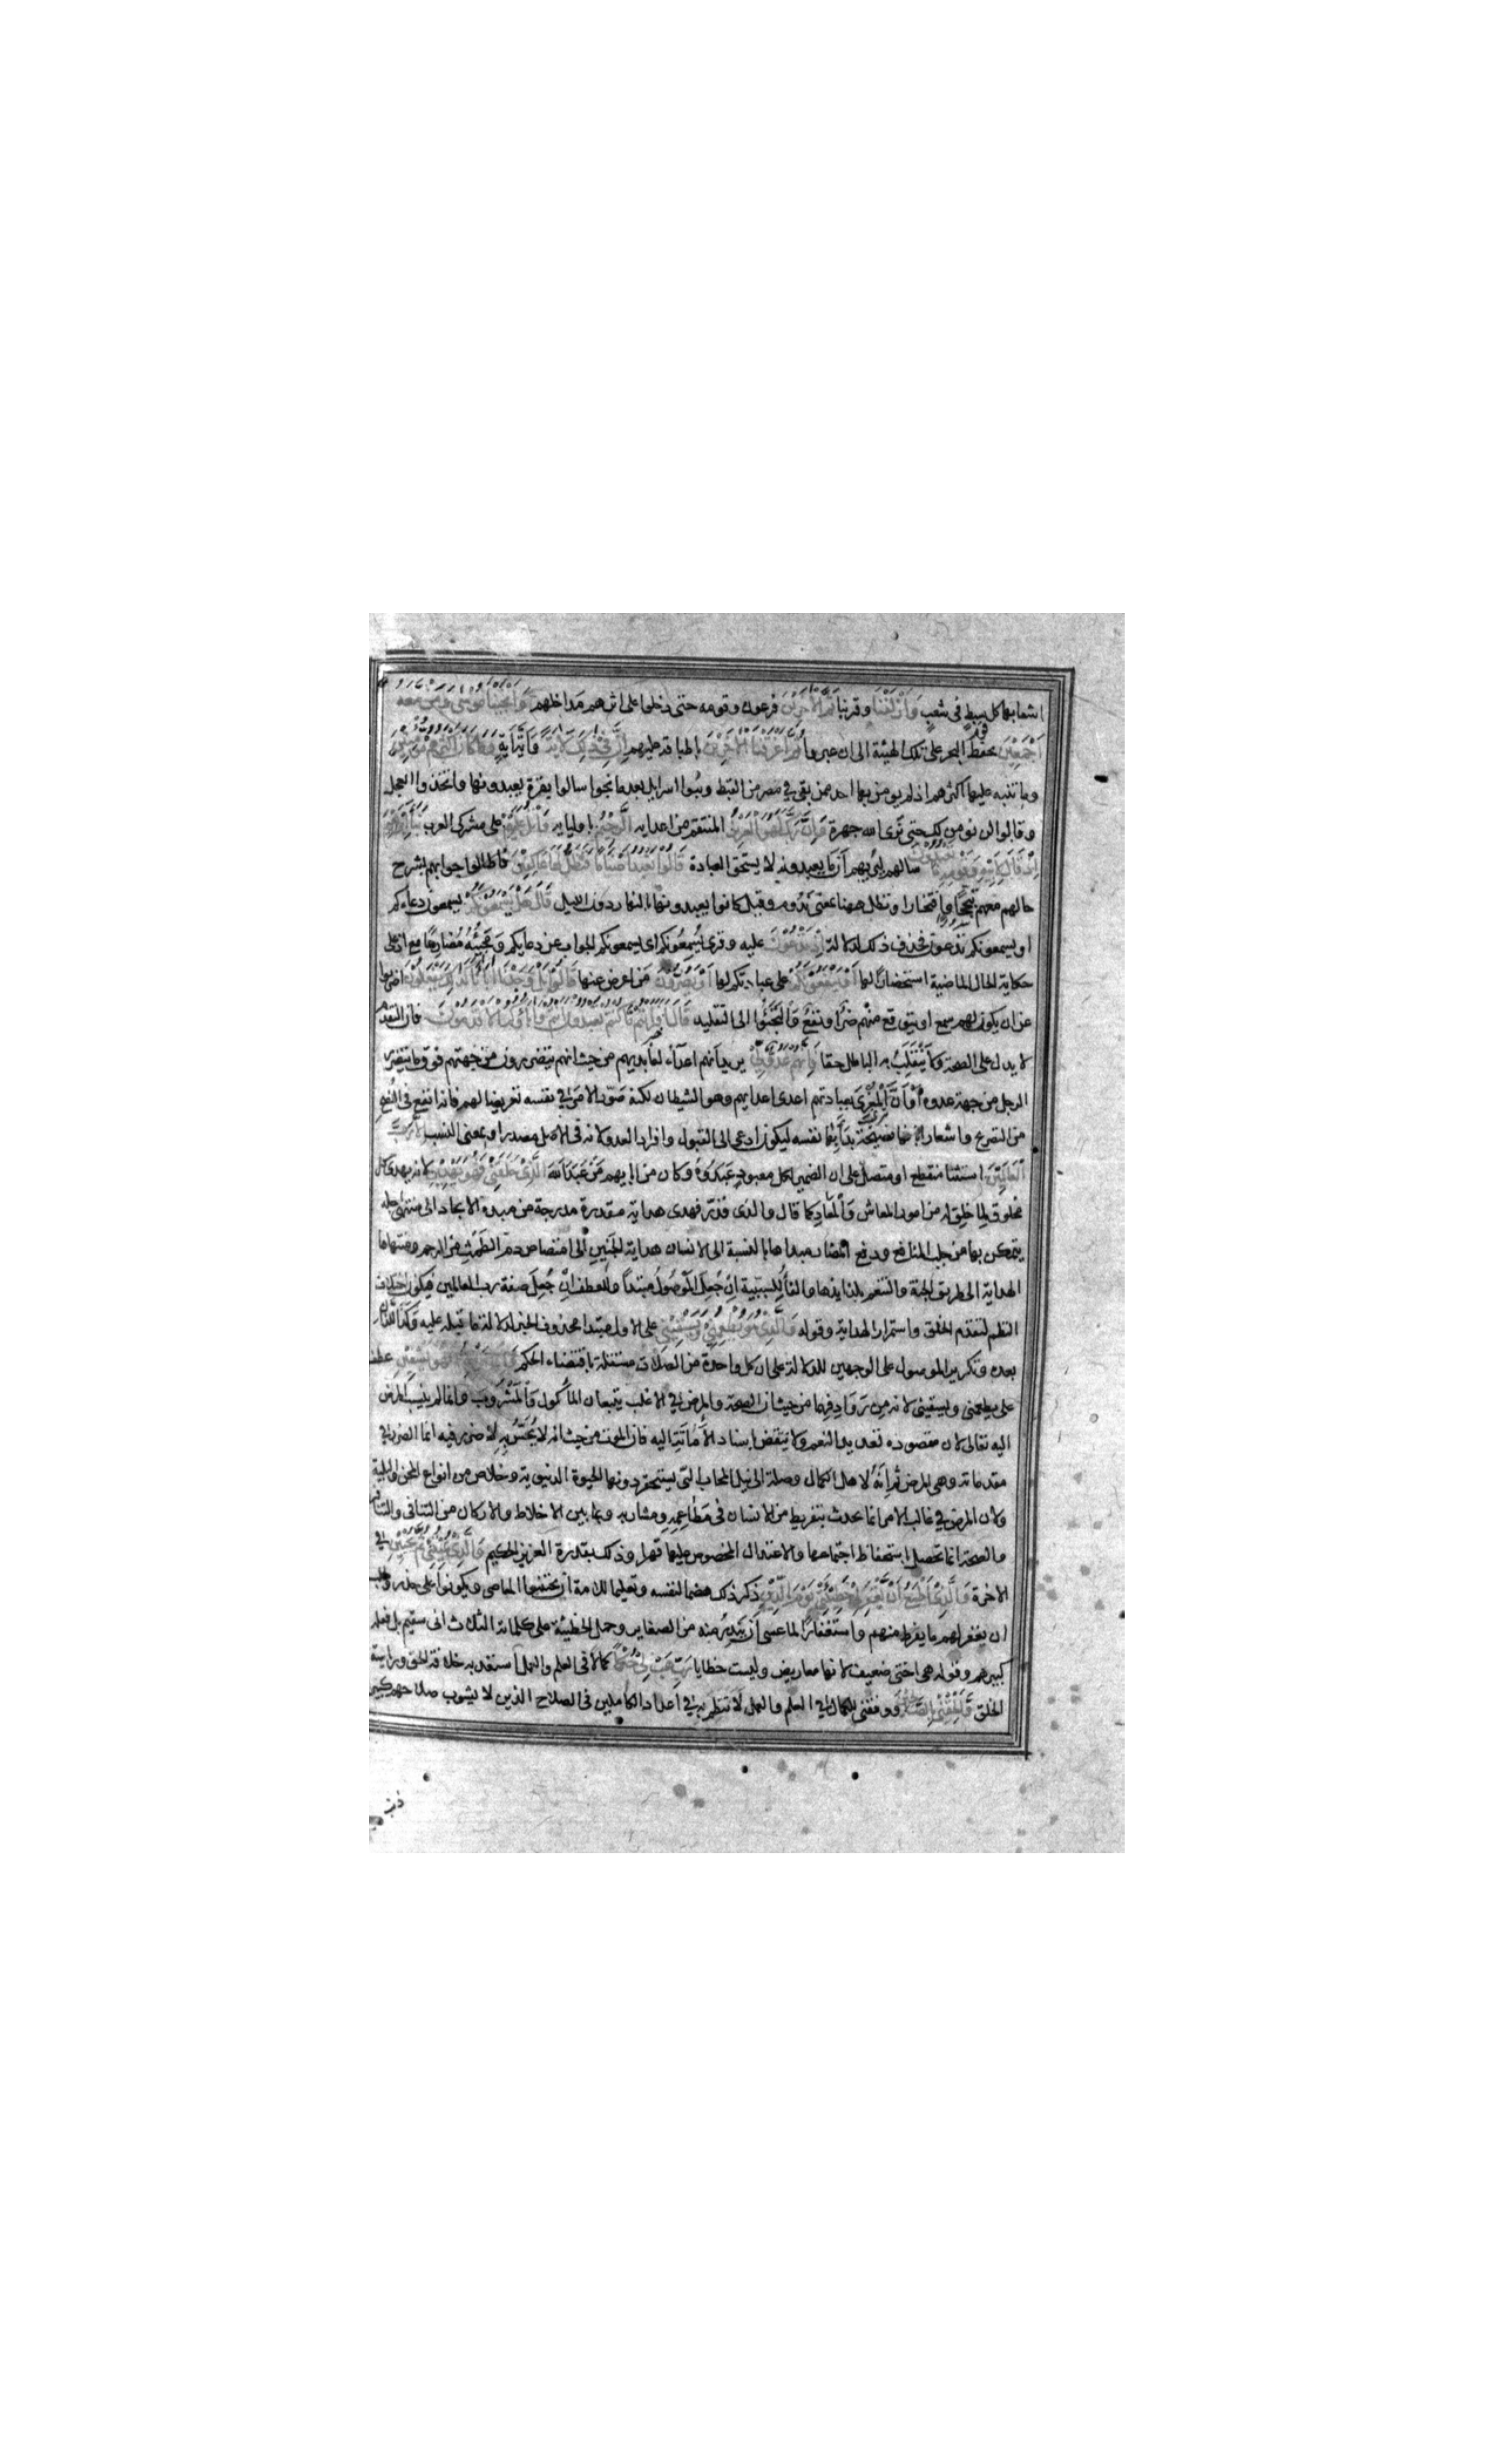 اشعابها كل سبط فى شعب وَاَزْلَفْنَا وقربنا ثَمَّ الْاٰخَرِيْنَ فرعون وقومه حتى دخلوا على اثرهم مداخلهم وَاَنْجَيْنَا مُوْسٰى وَمَنْ مَعَهُ
اَجْمَعِيْنَ بحفظ البحر على تلك الهيئة الى ان عبروا ثُمَّ اَغْرَقْنَا الْاٰخَرِيْنَ باطباقه عليهم اِنَّ فِيْ ذٰلِكَ لَاٰيَةً واية اية وَمَا كَانَ اَكْثَرُهُمْ مُؤْمِنِيْنَ
وما تنبه عليها اكثرهم اذ لم يومن بها احد ممن بقى فى مصر من القبط وبنوا اسرايل بعد ما نجوا سالوا بقرة يعبدونها واتخذوا العجل
وقالوا لن نومن لك حتى نرى الله جهرة وَاِنَّ رَبَّكَ لَهُوَ الْعَزِيْزُ المنتقم من اعدايه الرَّحِيْمُ باوليايه وَاتْلُ عَلَيْهِمْ على مشركى العرب نَبَأَ اِبْرٰهِيْمَ
اِذْ قَالَ لِاَبِيْهِ وَقَوْمِهٖ مَا تَعْبُدُوْنَ سالهم ليريهم ان ما يعبدونه لا يستحق العبادة قَالُوْا نَعْبُدُ اَصْنَامًا فَنَظَلُّ لَهَا عَاكِفِيْنَ فاطالوا جوابهم بشرح
حالهم معهم تبجحا وافتخارا ونظل ههنا بمعنى ندوم وقيل كانوا يعبدونها بالنهار دون الليل قَالَ هَلْ يَسْمَعُوْنَكُمْ يسمعون دعاءكم
او يسمعونكم تدعون فحذف ذلك لدلالة اِذْ تَدْعُوْنَ عليه وقرئ يُسْمِعُوْنَكم اى يسمعونكم الجواب عن دعايكم ومجيئه مضارعا مع اذ على
حكاية الحال الماضية استحضارا لها اَوْ يَنْفَعُوْنَكُمْ على عبادتكم لها اَوْ يَضُرُّوْنَ من اعرض عنها قَالُوْا بَلْ وَجَدْنَا اٰبَاءَنَا كَذٰلِكَ يَفْعَلُوْنَ اضربوا
عن ان يكون لهم سمع او يتوقع منهم ضر او نفع والتجئوا الى التقليد قَالَ اَفَرَاَيْتُمْ مَا كُنْتُمْ تَعْبُدُوْنَ اَنْتُمْ وَاٰبَاؤُكُمُ الْاَقْدَمُوْنَ فان التقدم
لا يدل على الصحة ولا ينقلب به الباطل حقا فَاِنَّهُمْ عَدُوٌّ لِيْ يريد انهم اعداء لعابديهم من حيث انهم يتضررون من جهتهم فوق ما يتضرر
الرجل من جهة عدوه او ان المغرى بعبادتهم اعدى اعدايهم وهو الشيطان لكنه صور الامر فى نفسه تعريضا لهم فانه انفع فى النصح
من التصريح واشعارا بانها نصيحة بدا بها نفسه ليكون ادعى الى القبول وافراد العدو لانه فى الاصل مصدر او بمعنى النسب اِلَّا رَبَّ
الْعَالَمِيْنَ استثنا منقطع او متصل على ان الضمير لكل معبود عبدوه وكان من ابايهم من عبد الله الَّذِيْ خَلَقَنِيْ فَهُوَ يَهْدِيْنِ لانه يهدى كل
مخلوق لما خلق له من امور المعاش والمعاد كما قال والذى قدر فهدى هداية مقدرة مدرجة من مبدء الايجاد الى منتهى اجله
يتمكن بها من جلب المنافع ودفع المضار مبداها بالنسبة الى الانسان هداية الجنين الى امتصاص دم الطمث من الرحم ومنتهاها
الهداية الى طريق الجنة والتنعم بلذايذها والفاء للسببية ان جعل الموصول مبتدا وللعطف ان جعل صفة رب العالمين فيكون اختلاف
النظم لتقدم الخلق واستمرار الهداية وقوله وَالَّذِيْ هُوَ يُطْعِمُنِيْ وَيَسْقِيْنِ على الاول مبتدا محذوف الخبر لدلالة ما قبله عليه وكذا اللذان
بعده وتكرير الموصول على الوجهين للدلالة على ان كل واحدة من الصلات مستقلة باقتضاء الحكم وَاِذَا مَرِضْتُ فَهُوَ يَشْفِيْنِ عطف
على يطعمنى ويسقينى لانه من روادفهما من حيث ان الصحة والمرض فى الاغلب يتبعان الماكول والمشروب وانما لم ينسب المرض
اليه تعالى لان مقصوده تعديد النعم ولا ينتقض باسناد الاماتة اليه فان الموت من حيث انه لا يحس به لا ضرر فيه انما الضرر فى
مقدماته وهى المرض ثم انه لاهل الكمال وصلة الى نيل المحاب التى يستحقر دونها الحيوة الدنيوية وخلاص من انواع المحن والبلية
ولان المرض فى غالب الامر انما يحدث بتفريط من الانسان فى مطاعمه ومشاربه وبما بين الاخلاط والاركان من التنافى والتنافر
والصحة انما تحصل باستحفاظ اجتماعها والاعتدال المخصوص عليها قهرا وذلك بقدرة العزيز الحكيم وَالَّذِيْ يُمِيْتُنِيْ ثُمَّ يُحْيِيْنِ فى
الاخرة وَالَّذِيْ اَطْمَعُ اَنْ يَغْفِرَ لِيْ خَطِيْئَتِيْ يَوْمَ الدِّيْنِ ذكر ذلك هضما لنفسه وتعليما للامة ان يجتنبوا المعاصى ويكونوا على حذر وطلب
ان يغفر لهم ما يفرط منهم واستغفارا لما عسى ان يندر منه من الصغاير وحمل الخطيئة على كلماته الثلاث انى سقيم بل فعله
كبيرهم وقوله هى اختى ضعيف لانها معاريض وليست خطايا رَبِّ هَبْ لِيْ حُكْمًا كمالا فى العلم والعمل استعد به خلافة الحق ورياسة
الخلق وَاَلْحِقْنِيْ بِالصَّالِحِيْنَ ووفقنى للكمال فى العلم والعمل لانتظم به فى اعداد الكاملين فى الصلاح الذين لا يشوب صلاحهم كبير
ذنب